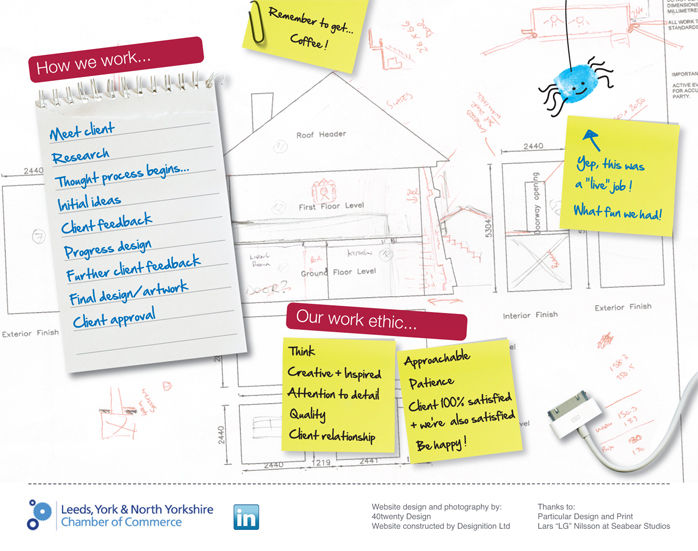 Remember to get...
Coffee!
How we work...
Meet client
Research
Thought process begins...
Initial ideas
Client feedback
Progress design
Further client feedback
Final design/artwork
Client approval
Yep, this was
a "live" job!
What fun we had!
Our work ethic...
Think
Creative + Inspired
Attention to detail
Quality
Client relationship
Approachable
Patience
Client 100% satisfied
+ we're also satisfied
Be happy!
Roof Header
First Floor Level
Ground Floor Level
2440
2440
5304
Doorway opening
Exterior Finish
Interior Finish
Exterior Finish
2440
2440
1219
2441
DIMENSIONS
MILLIMETRE
ALL WORK T
STANDARDS
IMPORTAN
ACTIVE EV
FOR ACCU
PARTY.
Leeds, York & North Yorkshire
Chamber of Commerce
in
Website design and photography by:
40twenty Design
Website constructed by Designition Ltd
Thanks to:
Particular Design and Print
Lars "LG" Nilsson at Seabear Studios